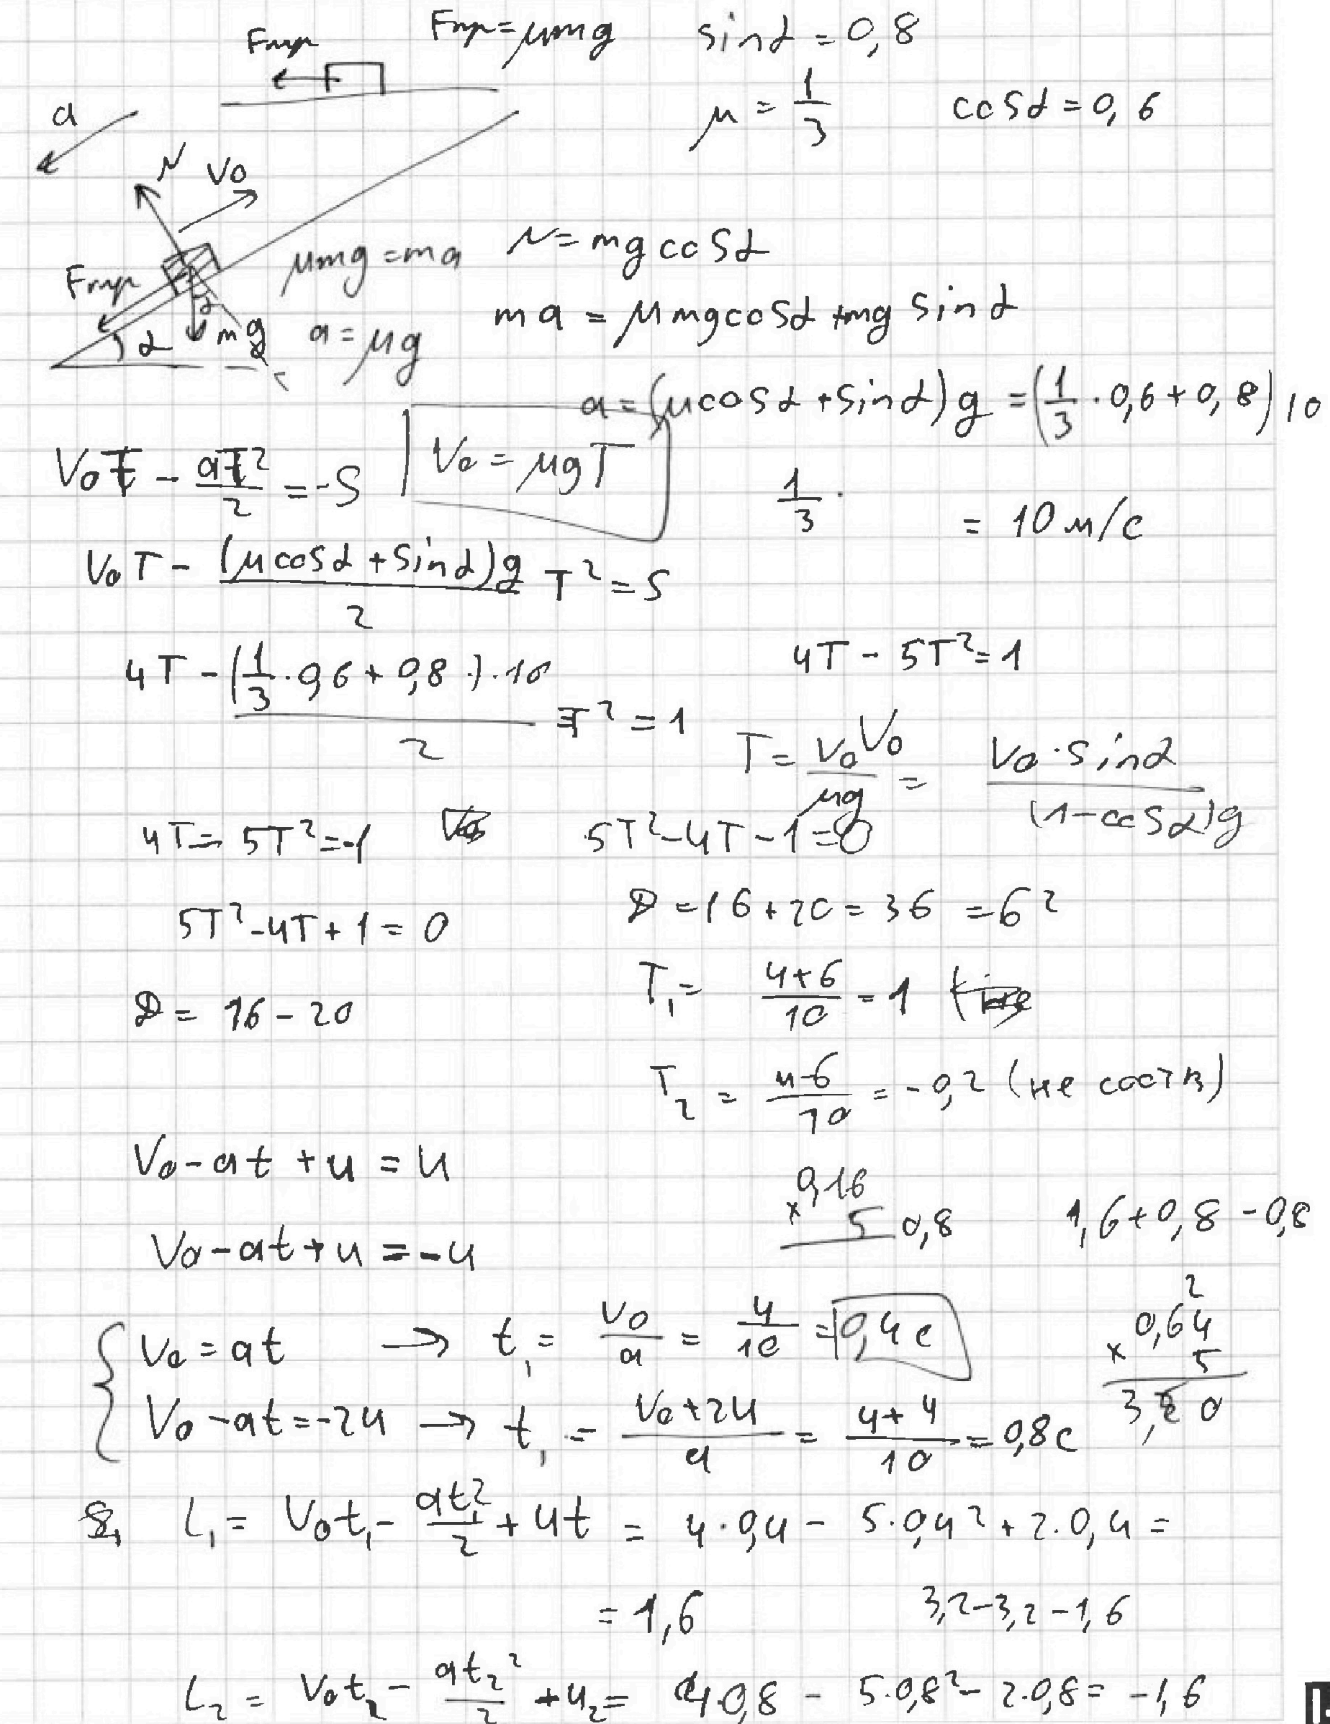 Fтр
Fтр = μmg
sinα = 0,8
μ = 1/3
cosα = 0,6
a
N
V0
Fтр
α
mg
μmg = ma
a = μg
N = mg cosα
ma = μmgcosα + mg sinα
a = (μcosα + sinα) g = (1/3 · 0,6 + 0,8) 10
V0T - aT²/2 = -S
V0 = μgT
1/3 ·
= 10 м/с
V0T - (μcosα + sinα)g/2 T² = S
4T - (1/3 · 0,6 + 0,8 ·) · 10/2 T² = 1
4T - 5T² = 1
T = V0/μg = V0 V0 · sinα/(1 - cosα)g
4T - 5T² = -1
5T² - 4T - 1 = 0
5T² - 4T + 1 = 0
D = 16 + 20 = 36 = 6²
D = 16 - 20
T1 = 4+6/10 = 1
T2 = 4-6/10 = -0,2 (не соотв)
V0 - at + u = u
V0 - at + u = -u
0,16
× 5
0,8
1,6 + 0,8 - 0,8
V0 = at → t1 = V0/a = 4/10 = 0,4 с
V0 - at = -2u → t1 = V0 + 2u/a = 4 + 4/10 = 0,8 с
2
0,64
× 5
3,20
L1 = V0t1 - at1²/2 + ut = 4 · 0,4 - 5 · 0,4² + 2 · 0,4 =
= 1,6
3,2 - 3,2 - 1,6
L2 = V0t2 - at2²/2 + u2 = 4 0,8 - 5 · 0,8² - 2 · 0,8 = -1,6